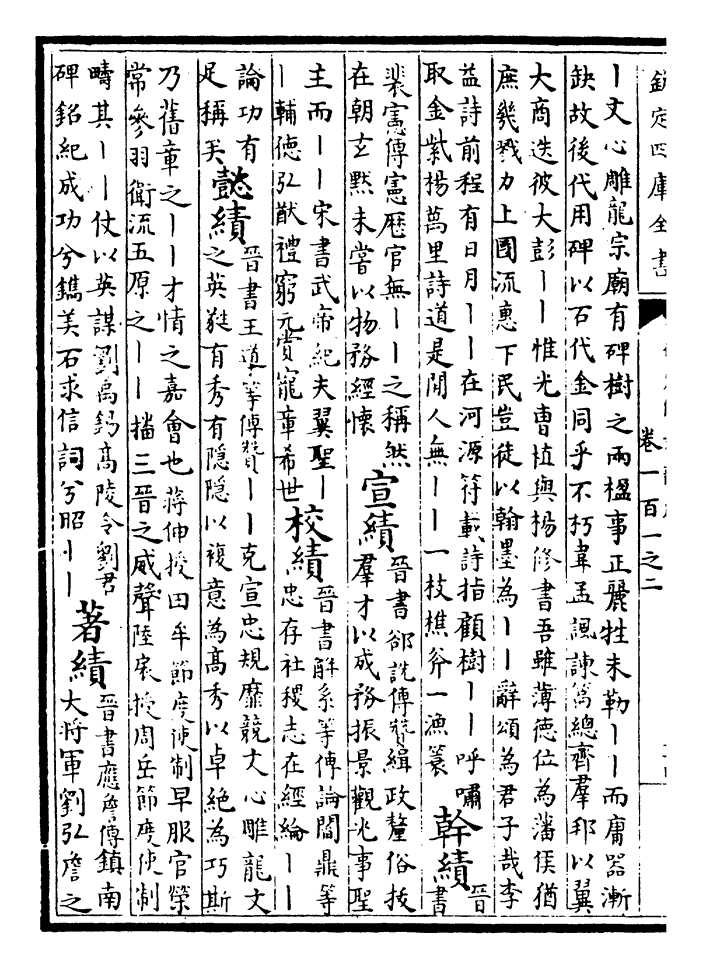 欽定四庫全書
卷一百一之二
丨文心雕龍宗廟有碑樹之兩楹事正麗牲未勒丨丨而庸器漸
缺故後代用碑以石代金同乎不朽韋孟諷諫篇總齊羣邦以翼
大商迭彼大彭丨丨惟光曹植與楊修書吾雖薄德位為藩侯猶
庶幾戮力上國流惠下民豈徒以翰墨為丨丨辭頌為君子哉李
益詩前程有日月丨丨在河源符載詩指顧樹丨丨呼嘯
取金紫楊萬里詩道是閒人無丨丨一枝樵斧一漁蓑
幹績
晉
書
裴憲傳憲歷官無丨丨之稱然
在朝玄默未嘗以物務經懷
宣績
晉書郤詵傳贊緝政釐俗技
羣才以成務振景觀光事聖
主而丨丨宋書武帝紀夫翼聖丨
丨輔德弘猷禮窮元賞寵章希世
校績
晉書解系等傳論閻鼎等
忠存社稷志在經綸丨丨
論功有
足稱矣
懿績
晉書王導等傳贊丨丨克宣忠規靡競文心雕龍文
之英蕤有秀有隱隱以複意為髙秀以卓絶為巧斯
乃舊章之丨丨才情之嘉會也蔣伸授田牟節度使制早服官榮
常參羽衛流五原之丨丨播三晉之威聲陸扆授周岳節度使制
疇其丨丨仗以英謀劉禹錫髙陵令劉君
碑銘紀成功兮鐫美石求信詞兮昭丨丨
著績
晉書應詹傳鎮南
大將軍劉弘詹之